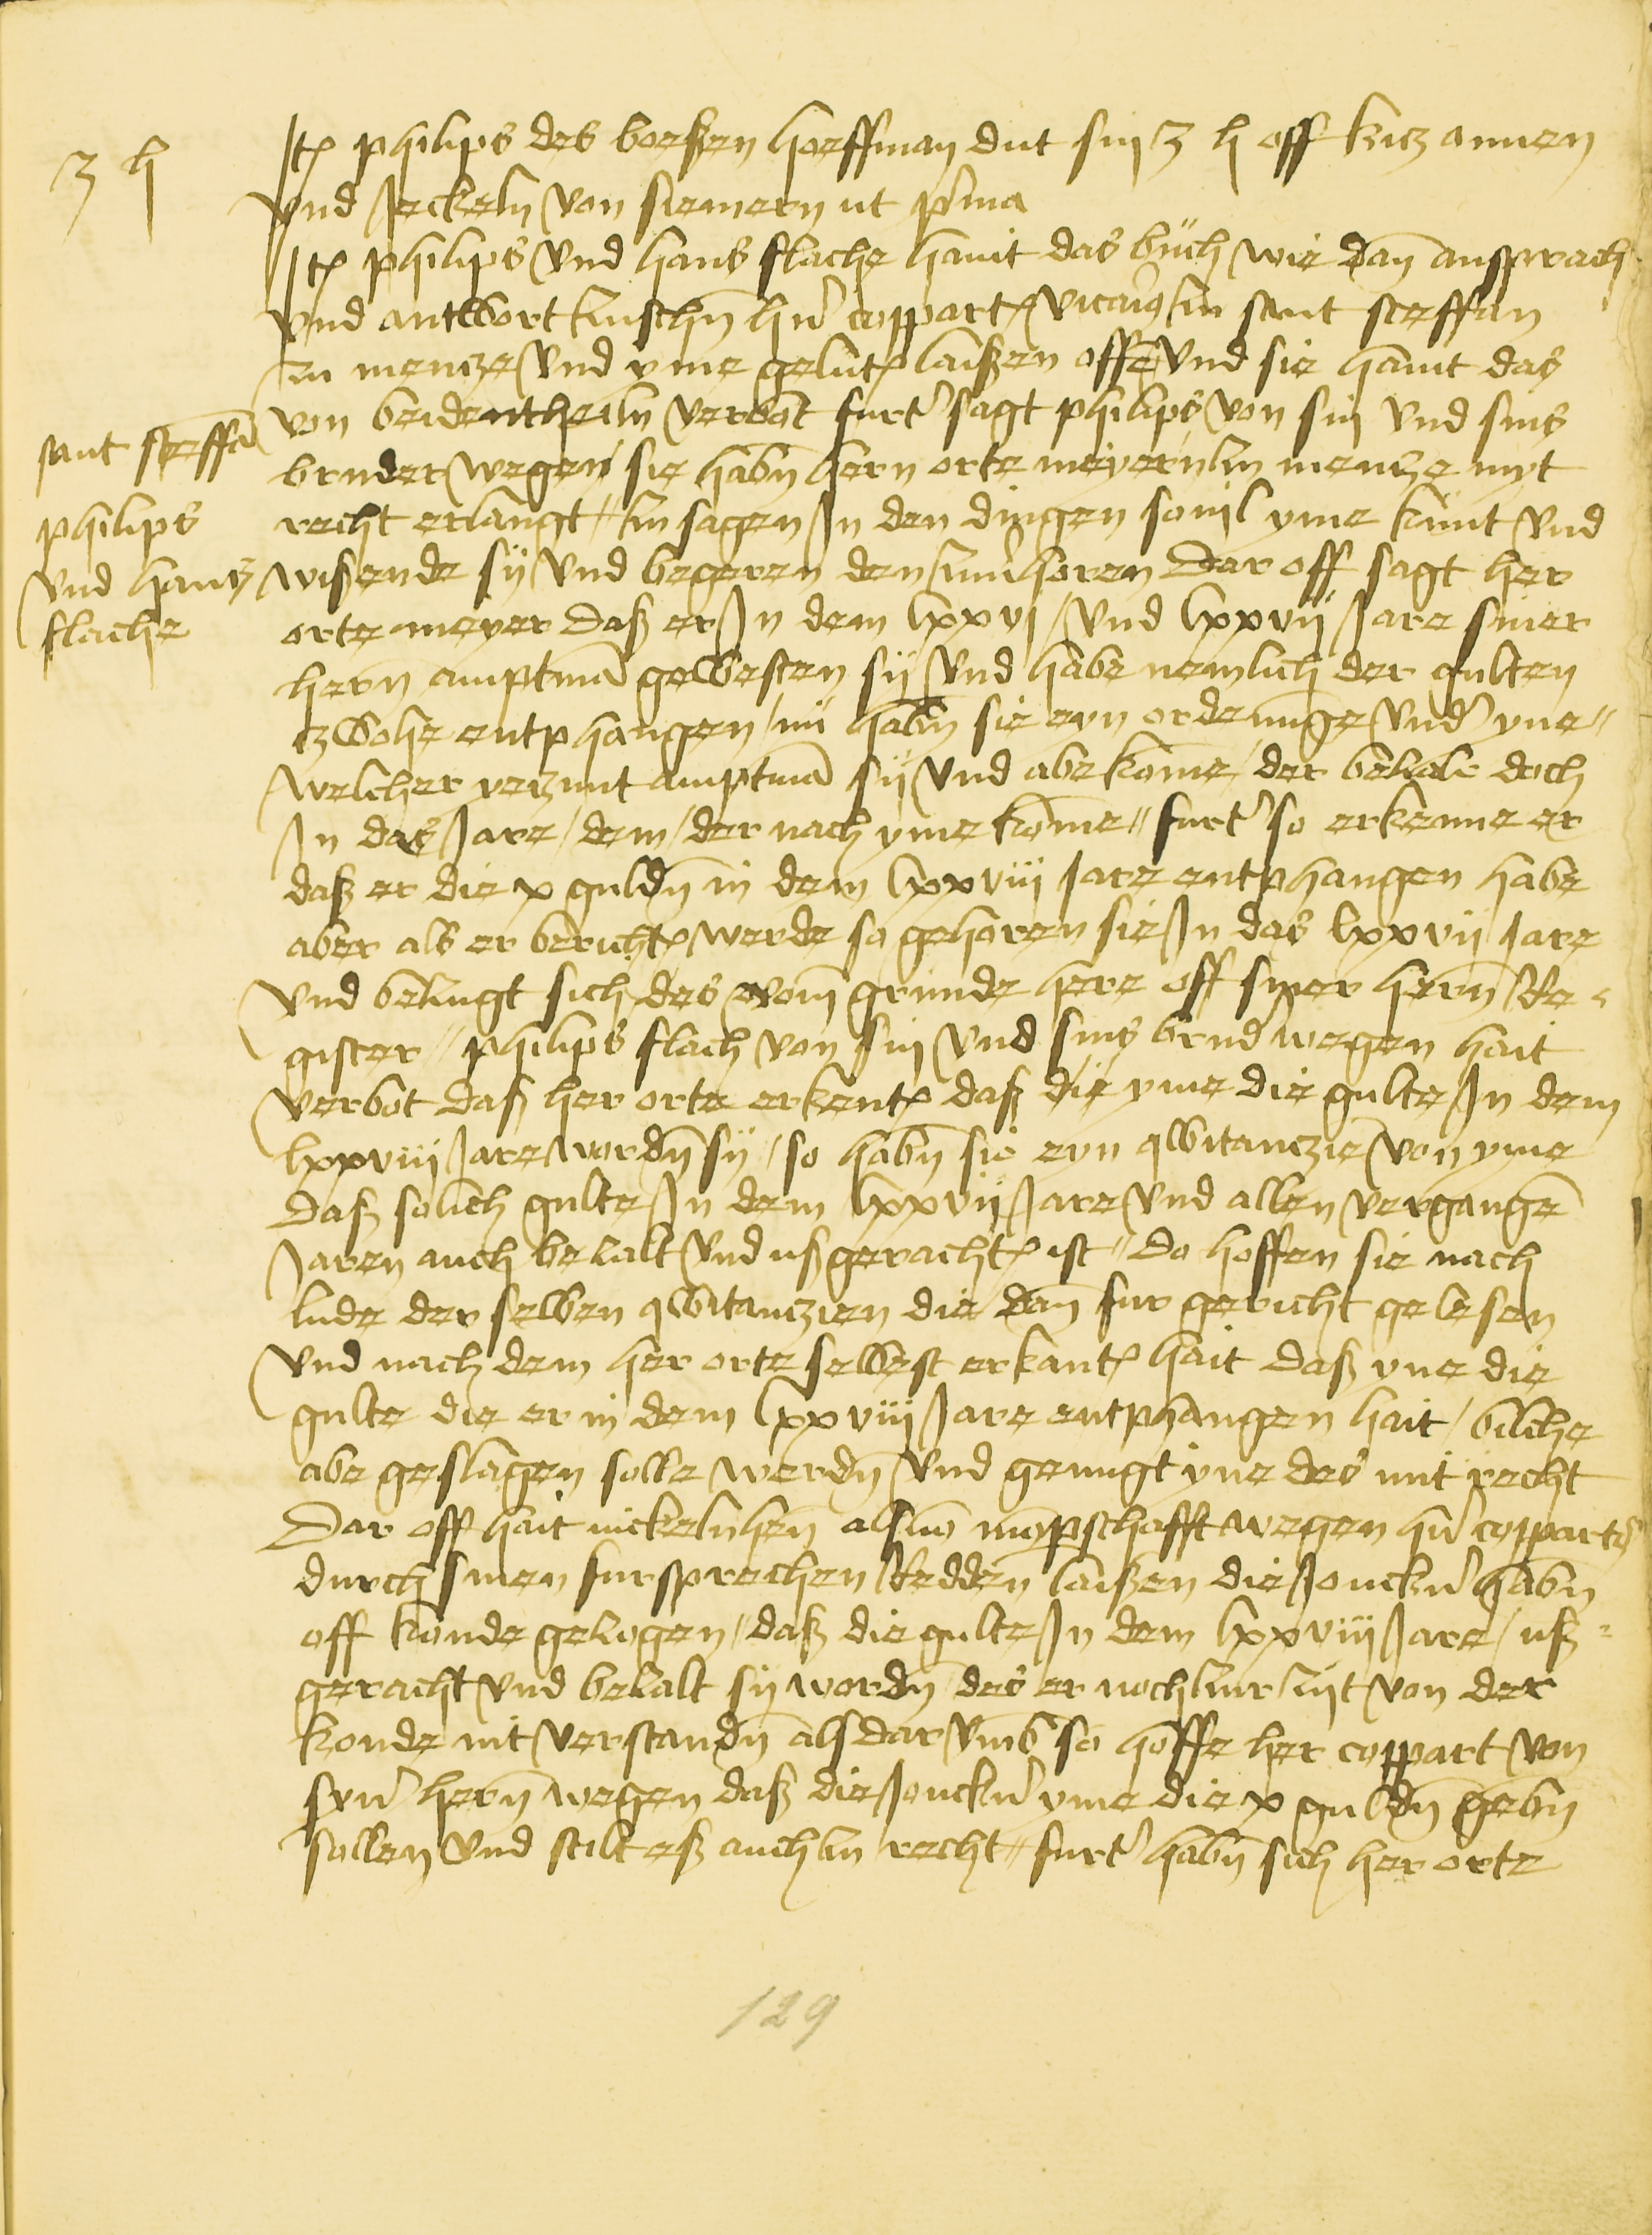 3 h
Jt(em) philips des boeßen hoeffman dut sin 3 h off kitz annen
vnd Jeckeln von siemern ut p(ri)ma
Jt(em) philips vnd hans flache hanit das buch wie dan ansprach
vnd antwort zuschn h(er)n coppart vicarÿ zu sant steffan
zu mencze vnd yme gelut laißen offen vnd sie hanit das
von beidentheiln verbot furt(er) sagt philips von sin vnd sins
sant steffa(n)
philips
vnd hantz
flache
bruder wegen sie habn hern orte meyern zu mentze myt
recht erlangt zu sagen Jn den dingen souil yme kunt vnd
wißende sÿ vnd begeren den zuu(er)horen Dar off sagt her
orte meyer daß er Jn dem lxxvj vnd lxxvij Jare siner
hern amptma(n) gewesten sÿ vnd habe nemlich der gulten
zwohe entphangen / nü habn sie eyn ordenunge vnd(er) yne
welcher yezunt amptma(n) sÿ vnd abe kome / der bezale doch
Jn das Jare / dem / der nach yme kome furt(er) so erkenne er
daß er die x guldn in dem lxxviij Jare entphangen habe
aber als er bericht werde so gehoren sie Jn das lxxvij Jare
vnd bezugt sich des vom grunde here off siner hern Re-
gister philips flach von sin vnd sins brud(er) wegen hait
verbot daß her orte erkent daß die yme die gulte Jn dem
lxxviij Jare wordn sÿ / so habn sie eyn qwitanczie von yme
Daß solich gulte Jn dem lxxvij Jare vnd allen vergange(n)
Jaren auch bezalt vnd ußgeracht ist Do hoffen sie nach
lude der selben qwitanczien die dan fur gericht gelesen
vnd nach dem her orte selbest erkant hait daß yne die
gulte die er in dem lxxviij Jare entphangen hait / biliche
abe geslagen solle werdn vnd genugt yne des mit recht
Dar off hait nickelnhen als mo(m)pschafft wegen h(er)n copparts
durch sinen fursprechen Redden laißen die Jonckh(er)n habn
off konde gezogen / daß die gulte Jn dem lxxviij Jare / uß-
geracht vnd bezalt sÿ wordn des er noch zur zijt von der
konde nit verstandn als dar vmb so hoffe her coppart von
syn(er) hern wegen daß die Jonckh(er)n yme die x guldn gebn
sollen vnd stilt eß auch zu recht furt(er) habn sich her orte
129